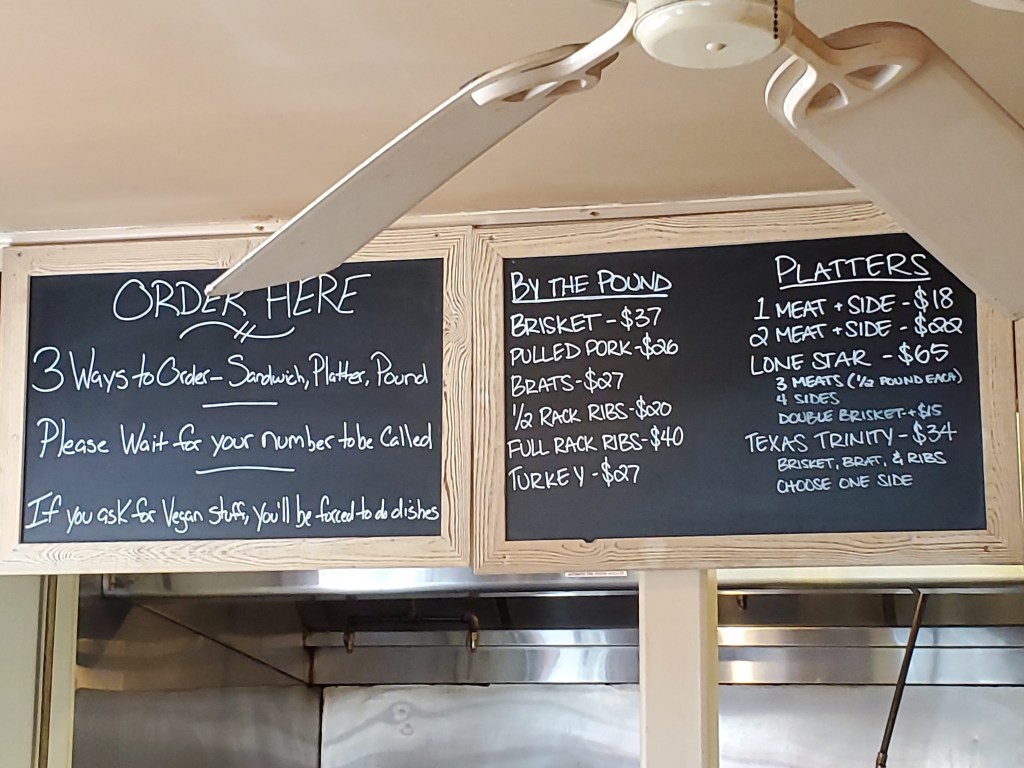 ORDER HERE
3 Ways to Order - Sandwich, Platter, Pound
Please Wait for your number to be Called
If you ask for Vegan Stuff, you'll be forced to do dishes
BY THE POUND
BRISKET - $37
PULLED PORK - $26
BRATS - $27
1/2 RACK RIBS - $20
FULL RACK RIBS - $40
TURKEY - $27
PLATTERS
1 MEAT + SIDE - $18
2 MEAT + SIDE - $22
LONE STAR - $65
3 MEATS (1/2 POUND EACH)
4 SIDES
DOUBLE BRISKET + $15
TEXAS TRINITY - $34
BRISKET, BRAT, & RIBS
CHOOSE ONE SIDE